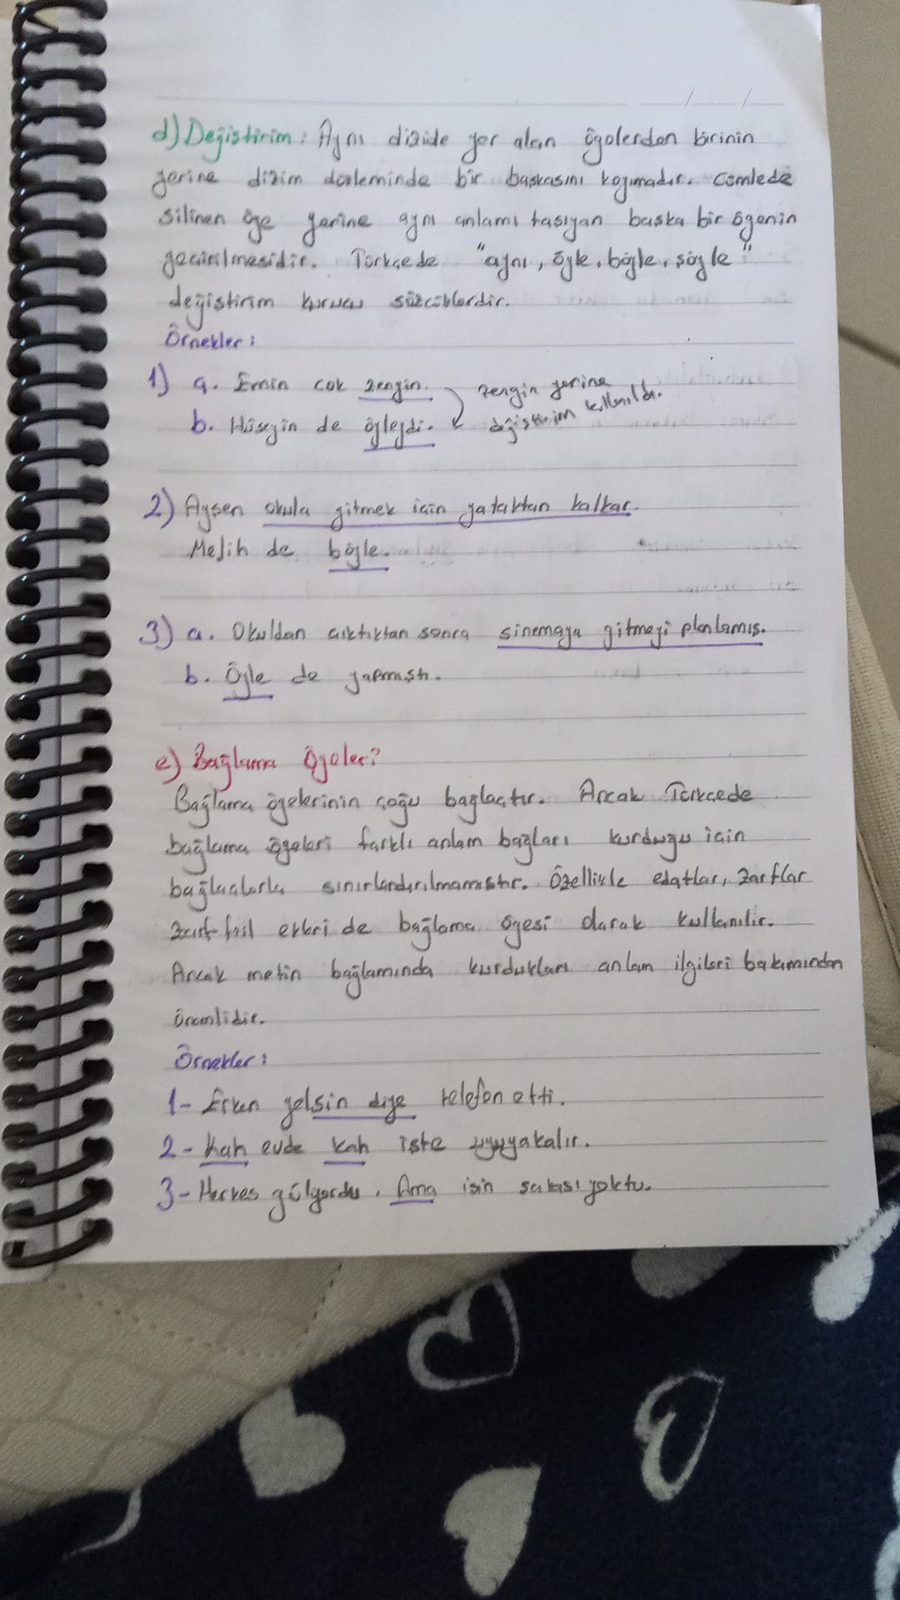 d) Değiştirim: Aynı dizide yer alan ögelerden birinin
yerine dizim düzleminde bir başkasını koymadır. Cümlede
silinen öge yerine aynı anlamı taşıyan başka bir ögenin
geçirilmesidir. Türkçede "aynı, öyle, böyle, şöyle"
değiştirim kurucu sözcüklerdir.
Örnekler:
1) a. Emin çok zengin. zengin yerine
b. Hüseyin de öyleydi. değiştirim kullanıldı.
2) Ayşen okula gitmek için yataktan kalkar.
Melih de böyle.
3) a. Okuldan çıktıktan sonra sinemaya gitmeyi planlamış.
b. Öyle de yapmıştı.
e) Bağlama Ögeleri:
Bağlama ögelerinin çoğu bağlaçtır. Ancak Türkçede
bağlama ögeleri farklı anlam bağları kurduğu için
bağlaçlarla sınırlandırılmamıştır. Özellikle edatlar, zarflar
zarf-fiil ekleri de bağlama ögesi olarak kullanılır.
Ancak metin bağlamında kurdukları anlam ilgileri bakımından
önemlidir.
Örnekler:
1- Erken gelsin diye telefon etti.
2- Kah evde kah işte uyuyakalır.
3- Herkes gülüyordu. Ama işin şakası yoktu.